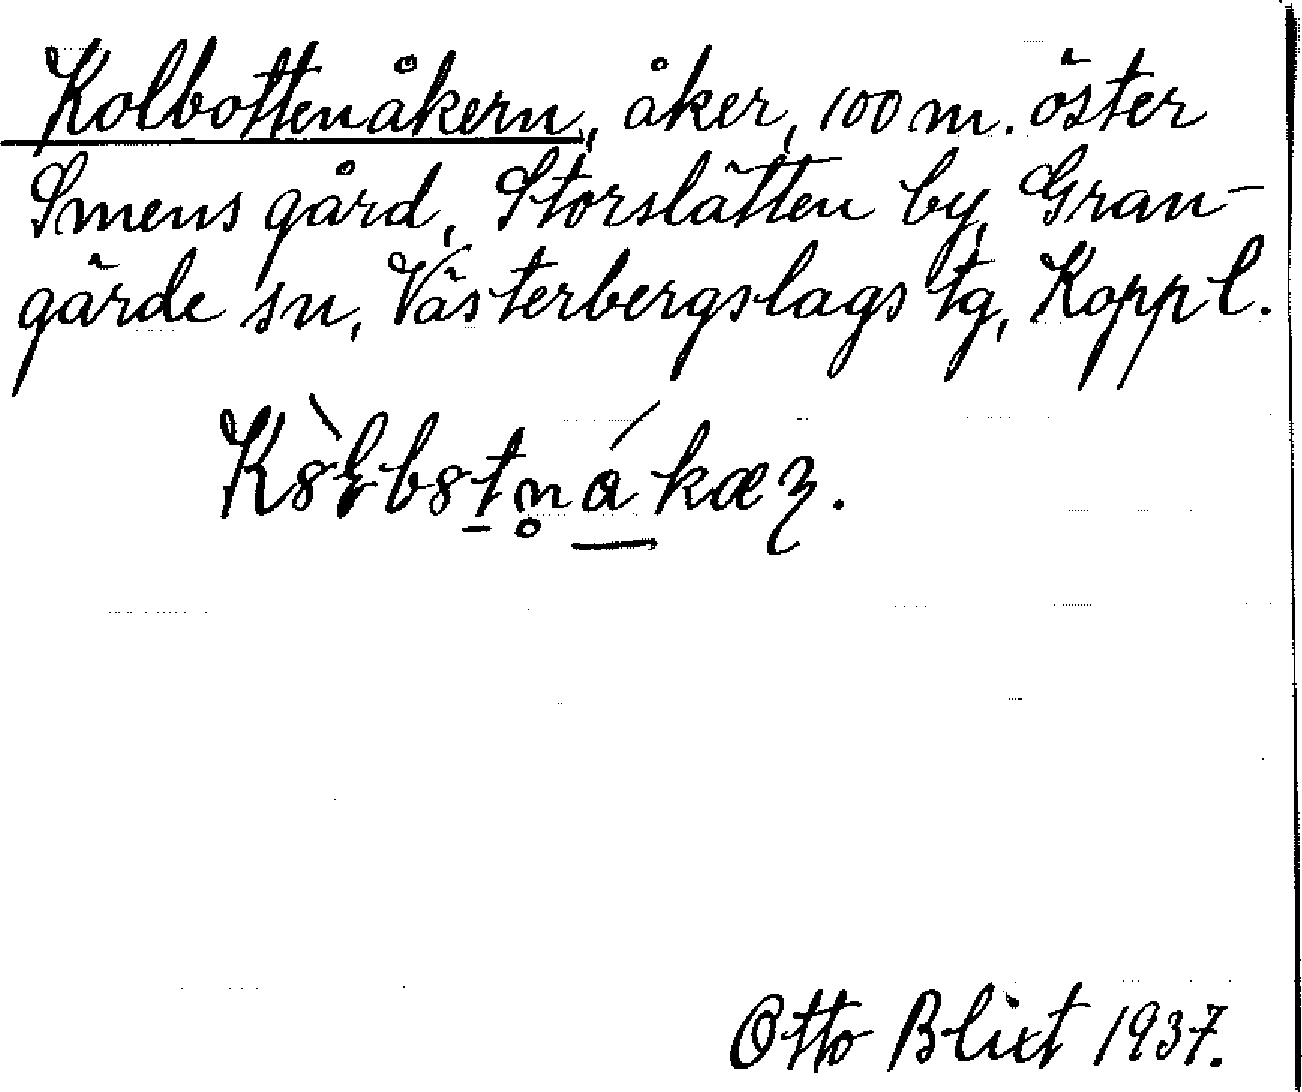 Kolbottenåkern, åker, 100 m. öster
Smens gård, Storslätten by, Gran-
gärde sn, Västerbergslags tg, Koppl.
Otto Blixt 1937.